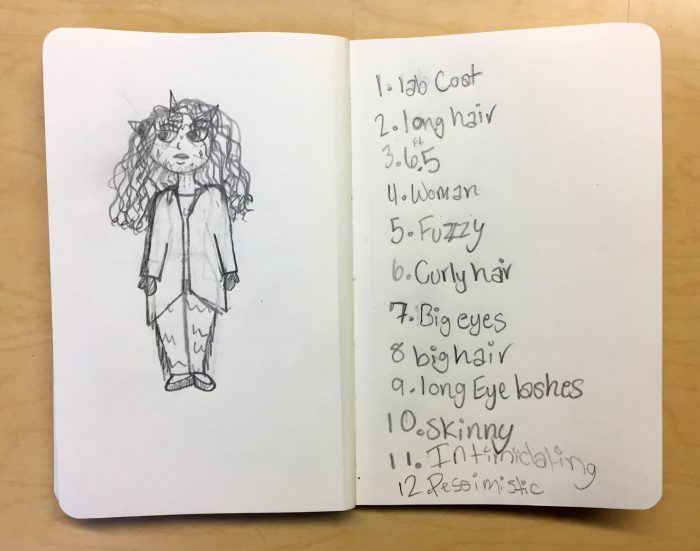 1. lab Coat
2. long hair
3. 6.5 ft
4. Woman
5. Fuzzy
6. Curly hair
7. Big eyes
8 big hair
9. long Eye lashes
10. skinny
11. Intimidating
12. Pessimistic